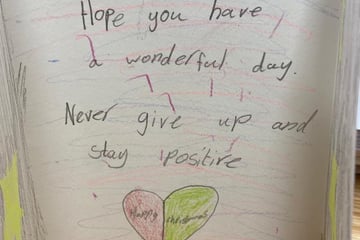 Hope you have
a wonderful day.
Never give up and
stay positive
Happy christmas